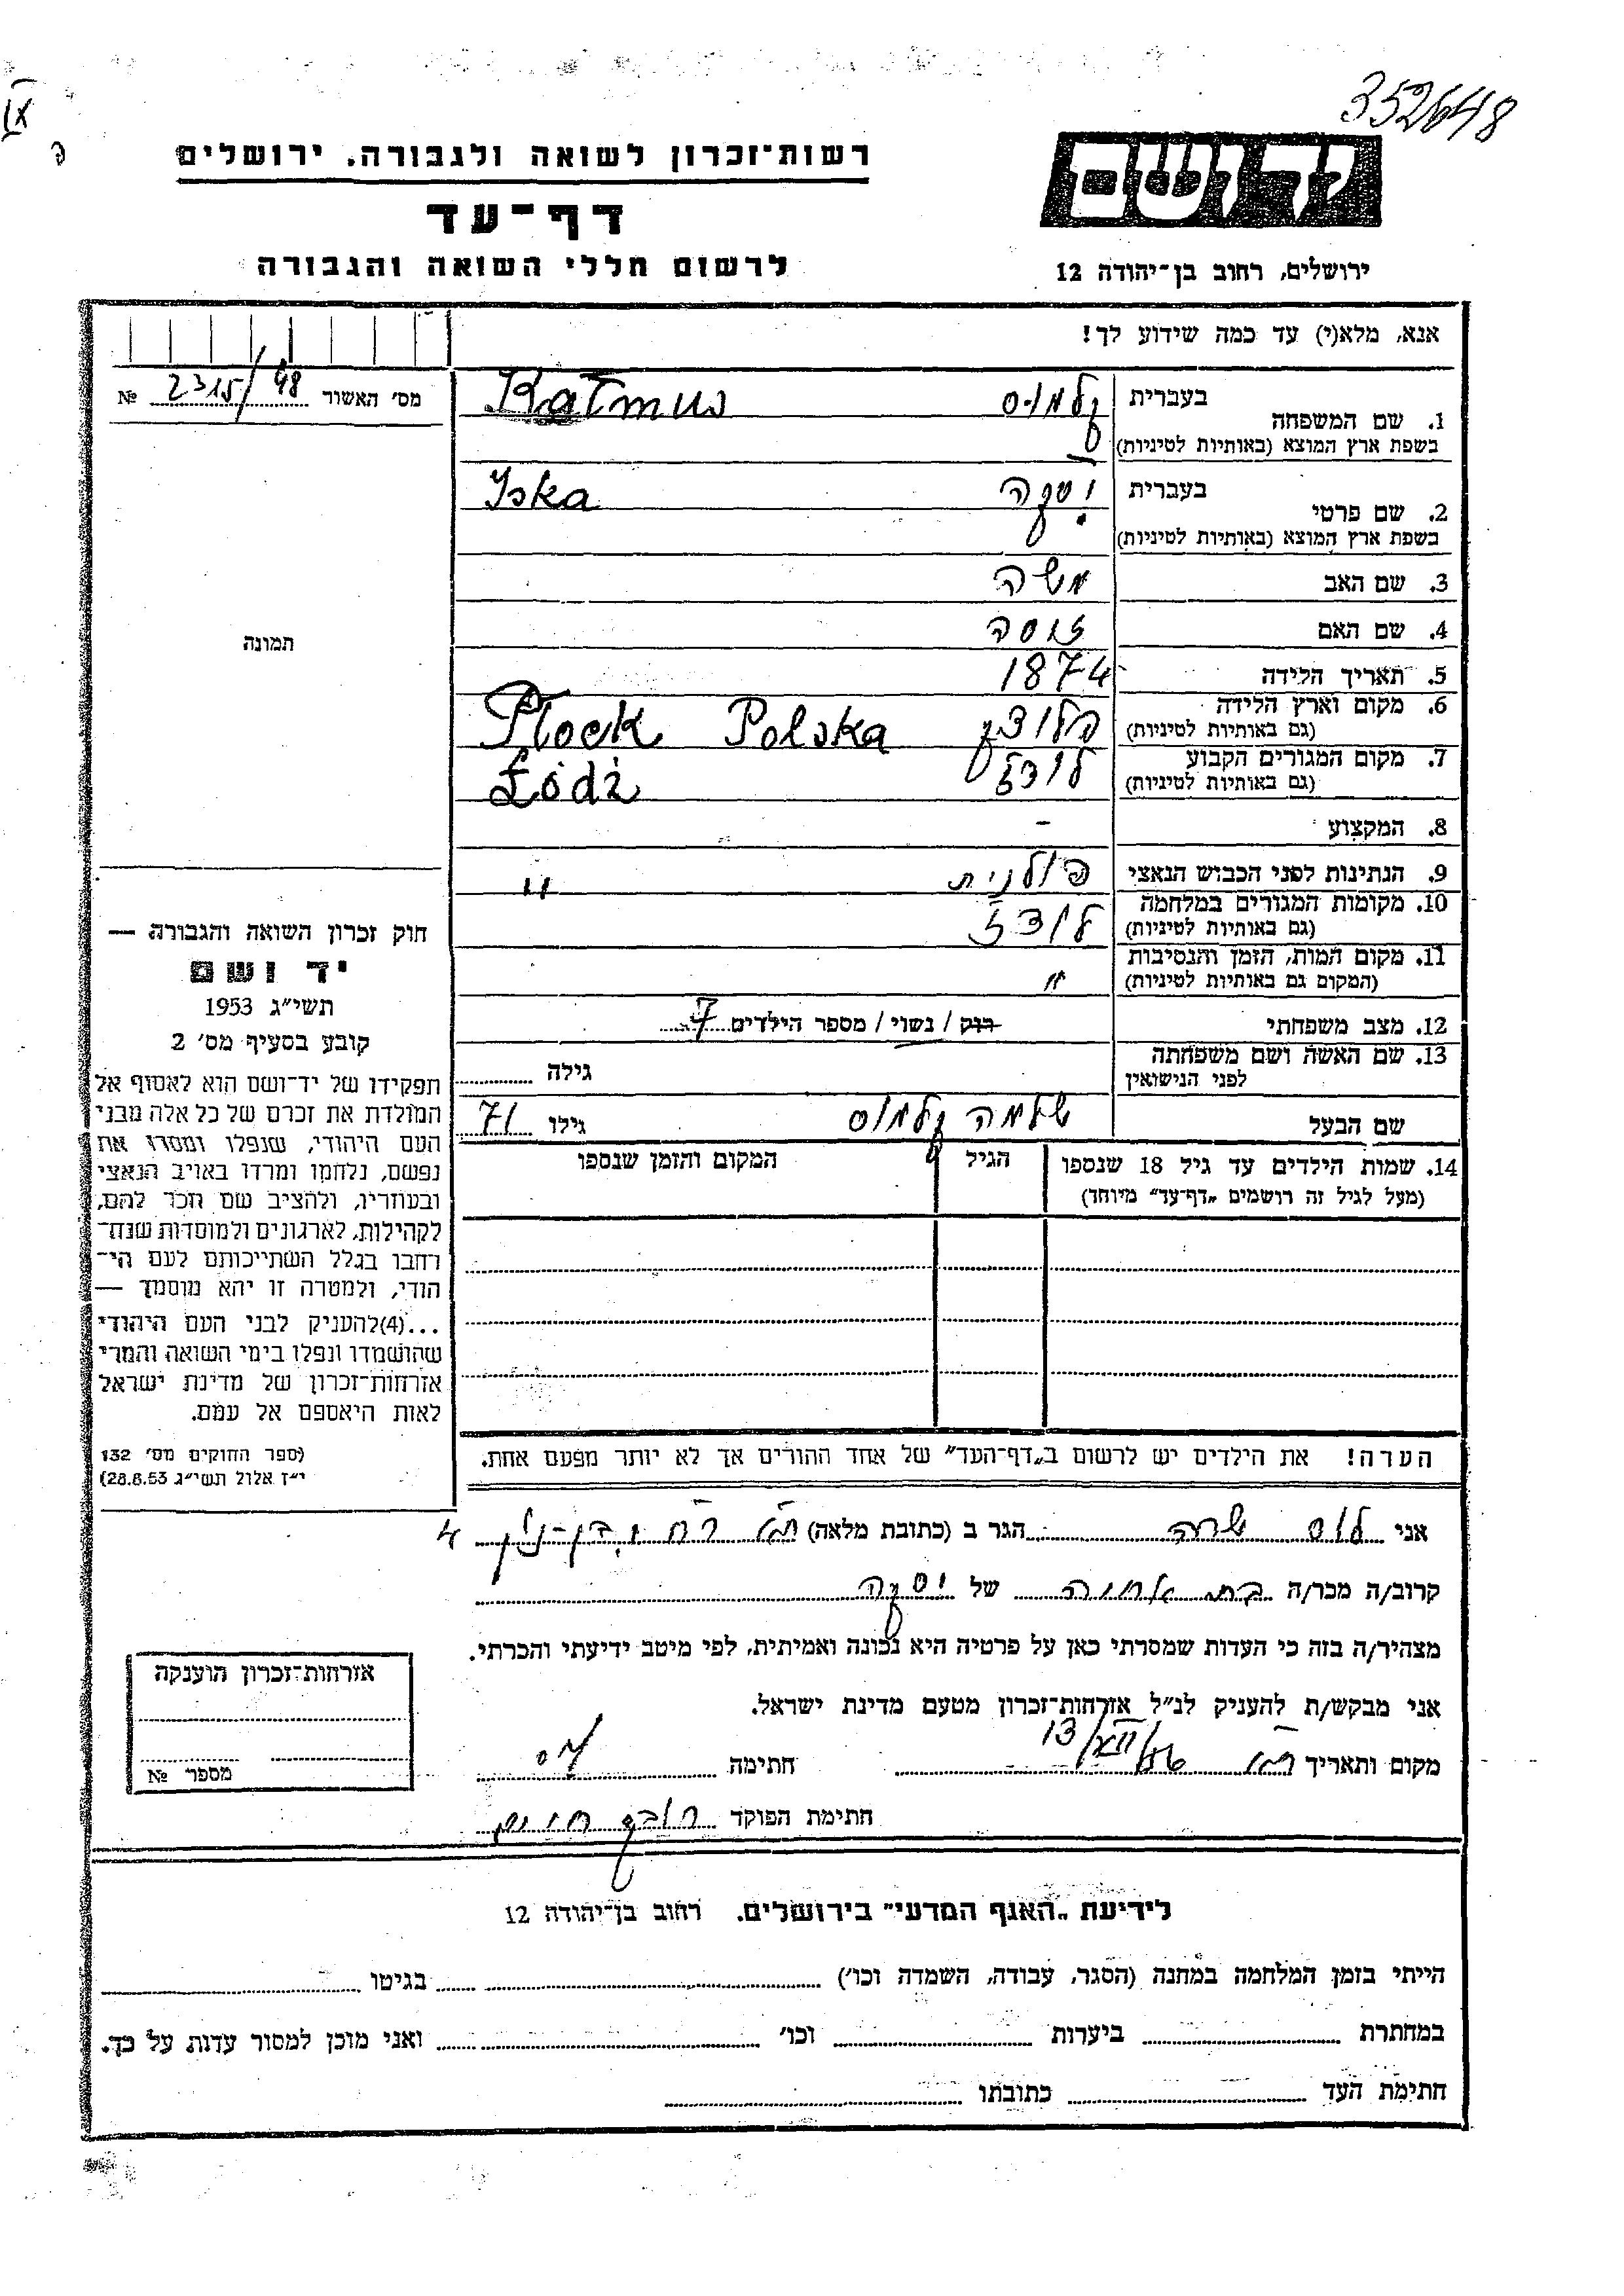 352648
רשות־זכרון לשואה ולגבורה, ירושלים
יד ושם
דף־עד
לרשום חללי השואה והגבורה
ירושלים, רחוב בן־יהודה 12
אנא, מלא(י) עד כמה שידוע לך!
מס' האשור 2315/48 №
1. שם המשפחה
בעברית קלמוס Kałmus
בשפת ארץ המוצא (באותיות לטיניות)
2. שם פרטי
בעברית יסקה Iska
בשפת ארץ המוצא (באותיות לטיניות)
3. שם האב משה
4. שם האם
5. תאריך הלידה 1874
6. מקום וארץ הלידה פלוצק Płock Polska
(גם באותיות לטיניות)
7. מקום המגורים הקבוע לודז Łódź
(גם באותיות לטיניות)
8. המקצוע –
9. הנתינות לפני הכבוש הנאצי פולנית "
10. מקומות המגורים במלחמה לודז
(גם באותיות לטיניות)
11. מקום המות, הזמן והנסיבות "
(המקום גם באותיות לטיניות)
12. מצב משפחתי רוק / נשוי / מספר הילדים 7
13. שם האשה ושם משפחתה גילה
לפני הנישואין
שם הבעל שלמה קלמוס גילו 71
14. שמות הילדים עד גיל 18 שנספו הגיל המקום והזמן שנספו
(מעל לגיל זה רושמים „דף־עד" מיוחד)
הערה! את הילדים יש לרשום ב„דף־העד" של אחד ההורים אך לא יותר מפעם אחת.
תמונה
חוק זכרון השואה והגבורה —
יד ושם
תשי"ג 1953
קובע בסעיף מס' 2
תפקידו של יד־ושם הוא לאסוף אל
המולדת את זכרם של כל אלה מבני
העם היהודי, שנפלו ומסרו את
נפשם, נלחמו ומרדו באויב הנאצי
ובעוזריו, ולהציב שם וזכר להם,
לקהילות, לארגונים ולמוסדות שנח־
רבו בגלל השתייכותם לעם הי־
הודי, ולמטרה זו יהא מוסמך —
...(4)להעניק לבני העם היהודי
שהושמדו ונפלו בימי השואה והמרי
אזרחות־זכרון של מדינת ישראל
לאות היאספם אל עמם.
(ספר החוקים מס' 132
י"ז אלול תשי"ג 28.8.53)
אני שרה הגר ב (כתובת מלאה) 4
קרוב/ה מכר/ה בת אחות של יסקה
מצהיר/ה בזה כי העדות שמסרתי כאן על פרטיה היא נכונה ואמיתית, לפי מיטב ידיעתי והכרתי.
אני מבקש/ת להעניק לנ"ל אזרחות־זכרון מטעם מדינת ישראל.
מקום ותאריך 13/XII/ חתימה
חתימת הפוקד
אזרחות־זכרון הוענקה
מספר №
לידיעת „האגף המדעי" בירושלים, רחוב בן־יהודה 12
הייתי בזמן המלחמה במחנה (הסגר, עבודה, השמדה וכו') בגיטו
במחתרת ביערות וכו' ואני מוכן למסור עדות על כך.
חתימת העד כתובתו